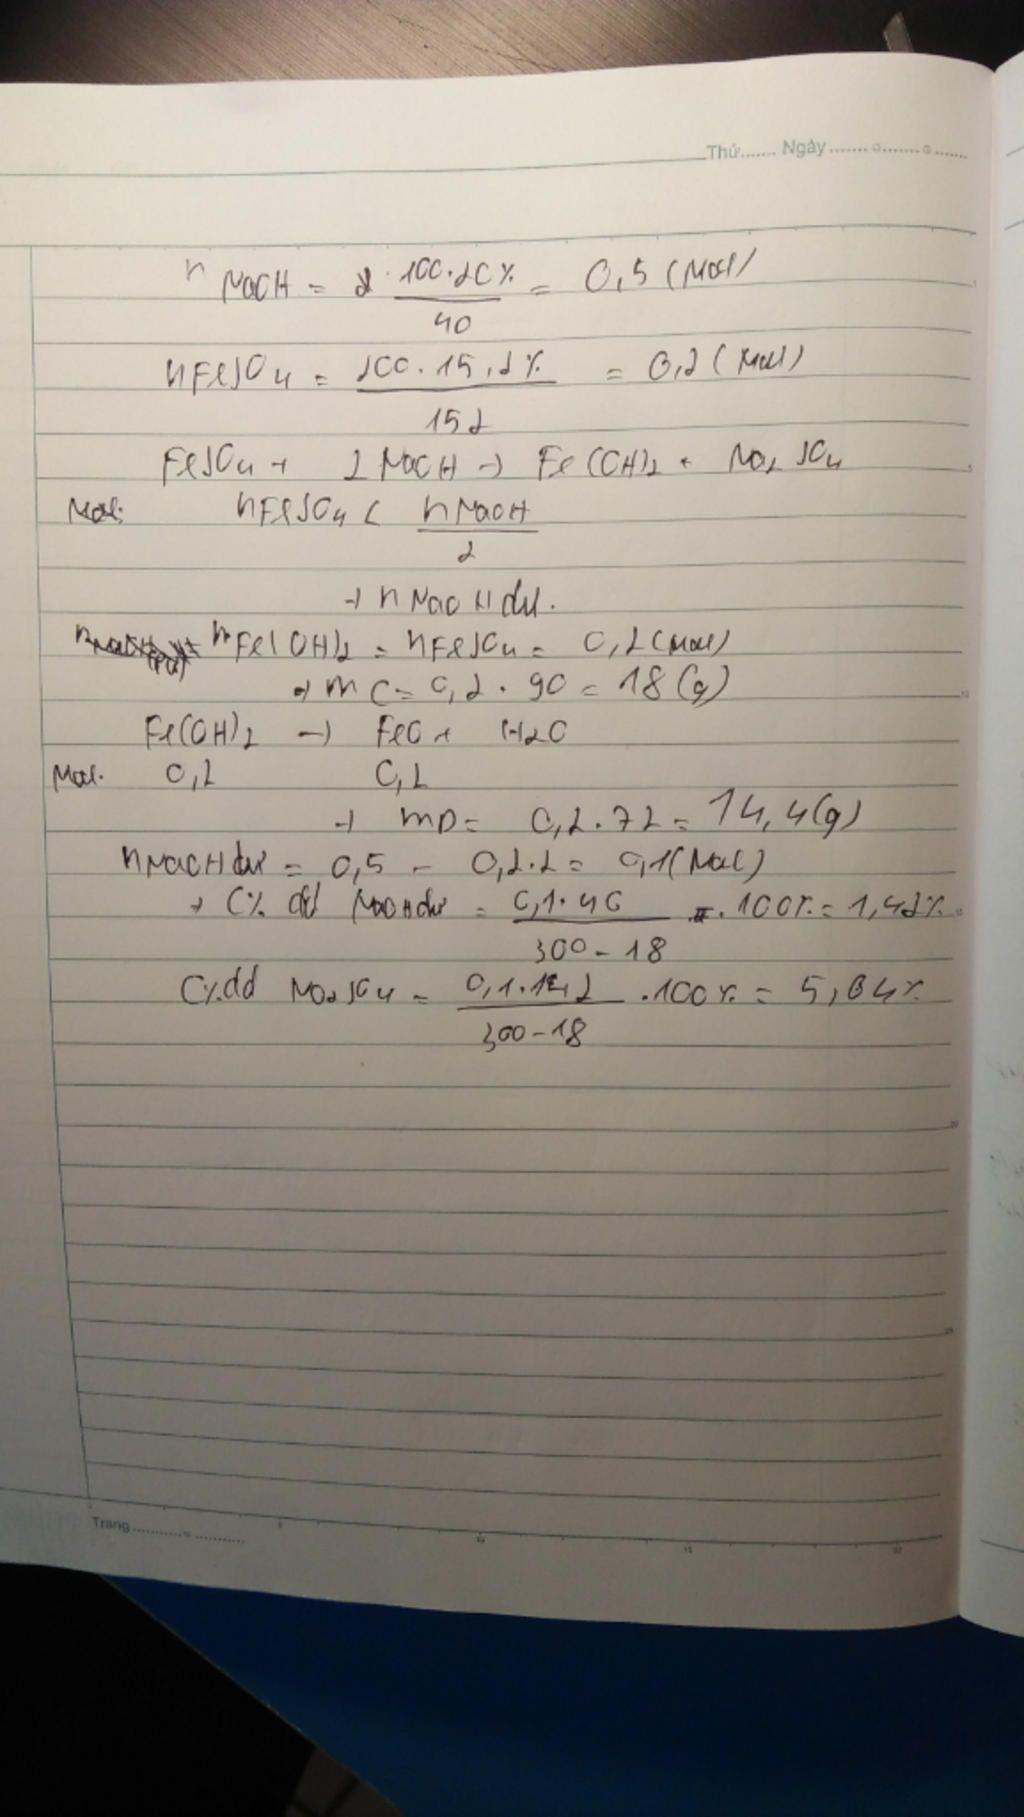 Thứ....... Ngày ....... o....... o......
n NaOH = 100.20% / 40 = 0,5 (Mol)
nFeSO4 = 200.15,2% / 152 = 0,2 (Mol)
FeSO4 + 2 NaOH → Fe(OH)2 + Na2SO4
Mol: nFeSO4 < nNaOH / 2
→ n NaOH dư.
nFe(OH)2 = nFeSO4 = 0,2 (Mol)
→ mC = 0,2 . 90 = 18 (g)
Fe(OH)2 → FeO + H2O
Mol. 0,2 0,2
→ mD = 0,2.72 = 14,4(g)
nNaOH dư = 0,5 - 0,2.2 = 0,1(Mol)
→ C% dd NaOH dư = 0,1.40 / 300-18 .100% = 1,42%
C%dd Na2SO4 = / 300-18 .100% = 5,04%
Trang